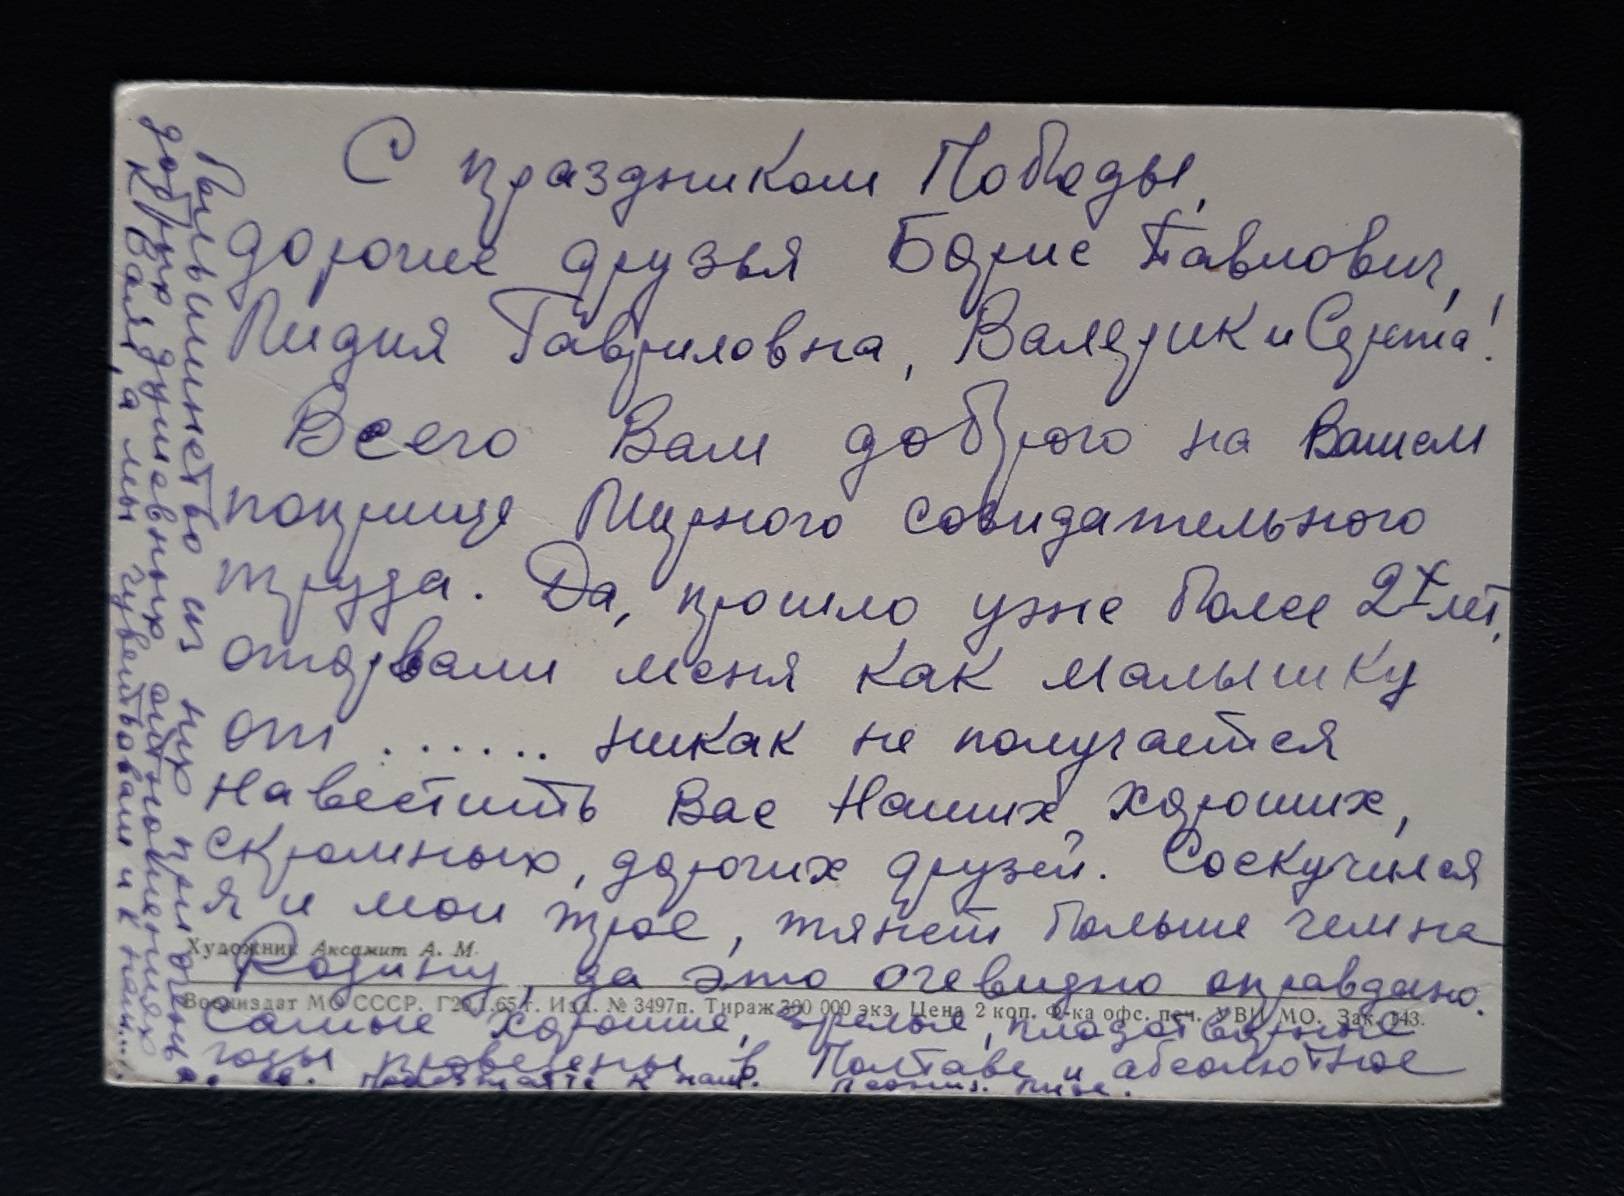 С праздником Победы,
дорогие друзья Борис Павлович,
Лидия Гавриловна, Валерик и Серёжа!
Всего Вам доброго на Вашем
поприще Мирного созидательного
труда. Да, прошло уже более 27 лет,
оторвали меня как малышку
от ....... никак не получается
навестить Вас Наших хороших,
скромных, дорогих друзей. Соскучился
я и мои трое, тянет больше чем на
Родину, да это очевидно оправдано.
Самые хорошие, зрелые, плодотворные
годы проведены в Полтаве и абсолютное
большинство из них при очень
добрых душевных отношениях
к Вам, а мы чувствовали и к нам...
Приезжайте к нам. Леонид.
Художник Аксамит А. М.
Воениздат МО СССР. Г20.1.65 г. Изд. № 3497п. Тираж 300 000 экз. Цена 2 коп. Ф-ка офс. печ. УВИ МО. Зак. 143.